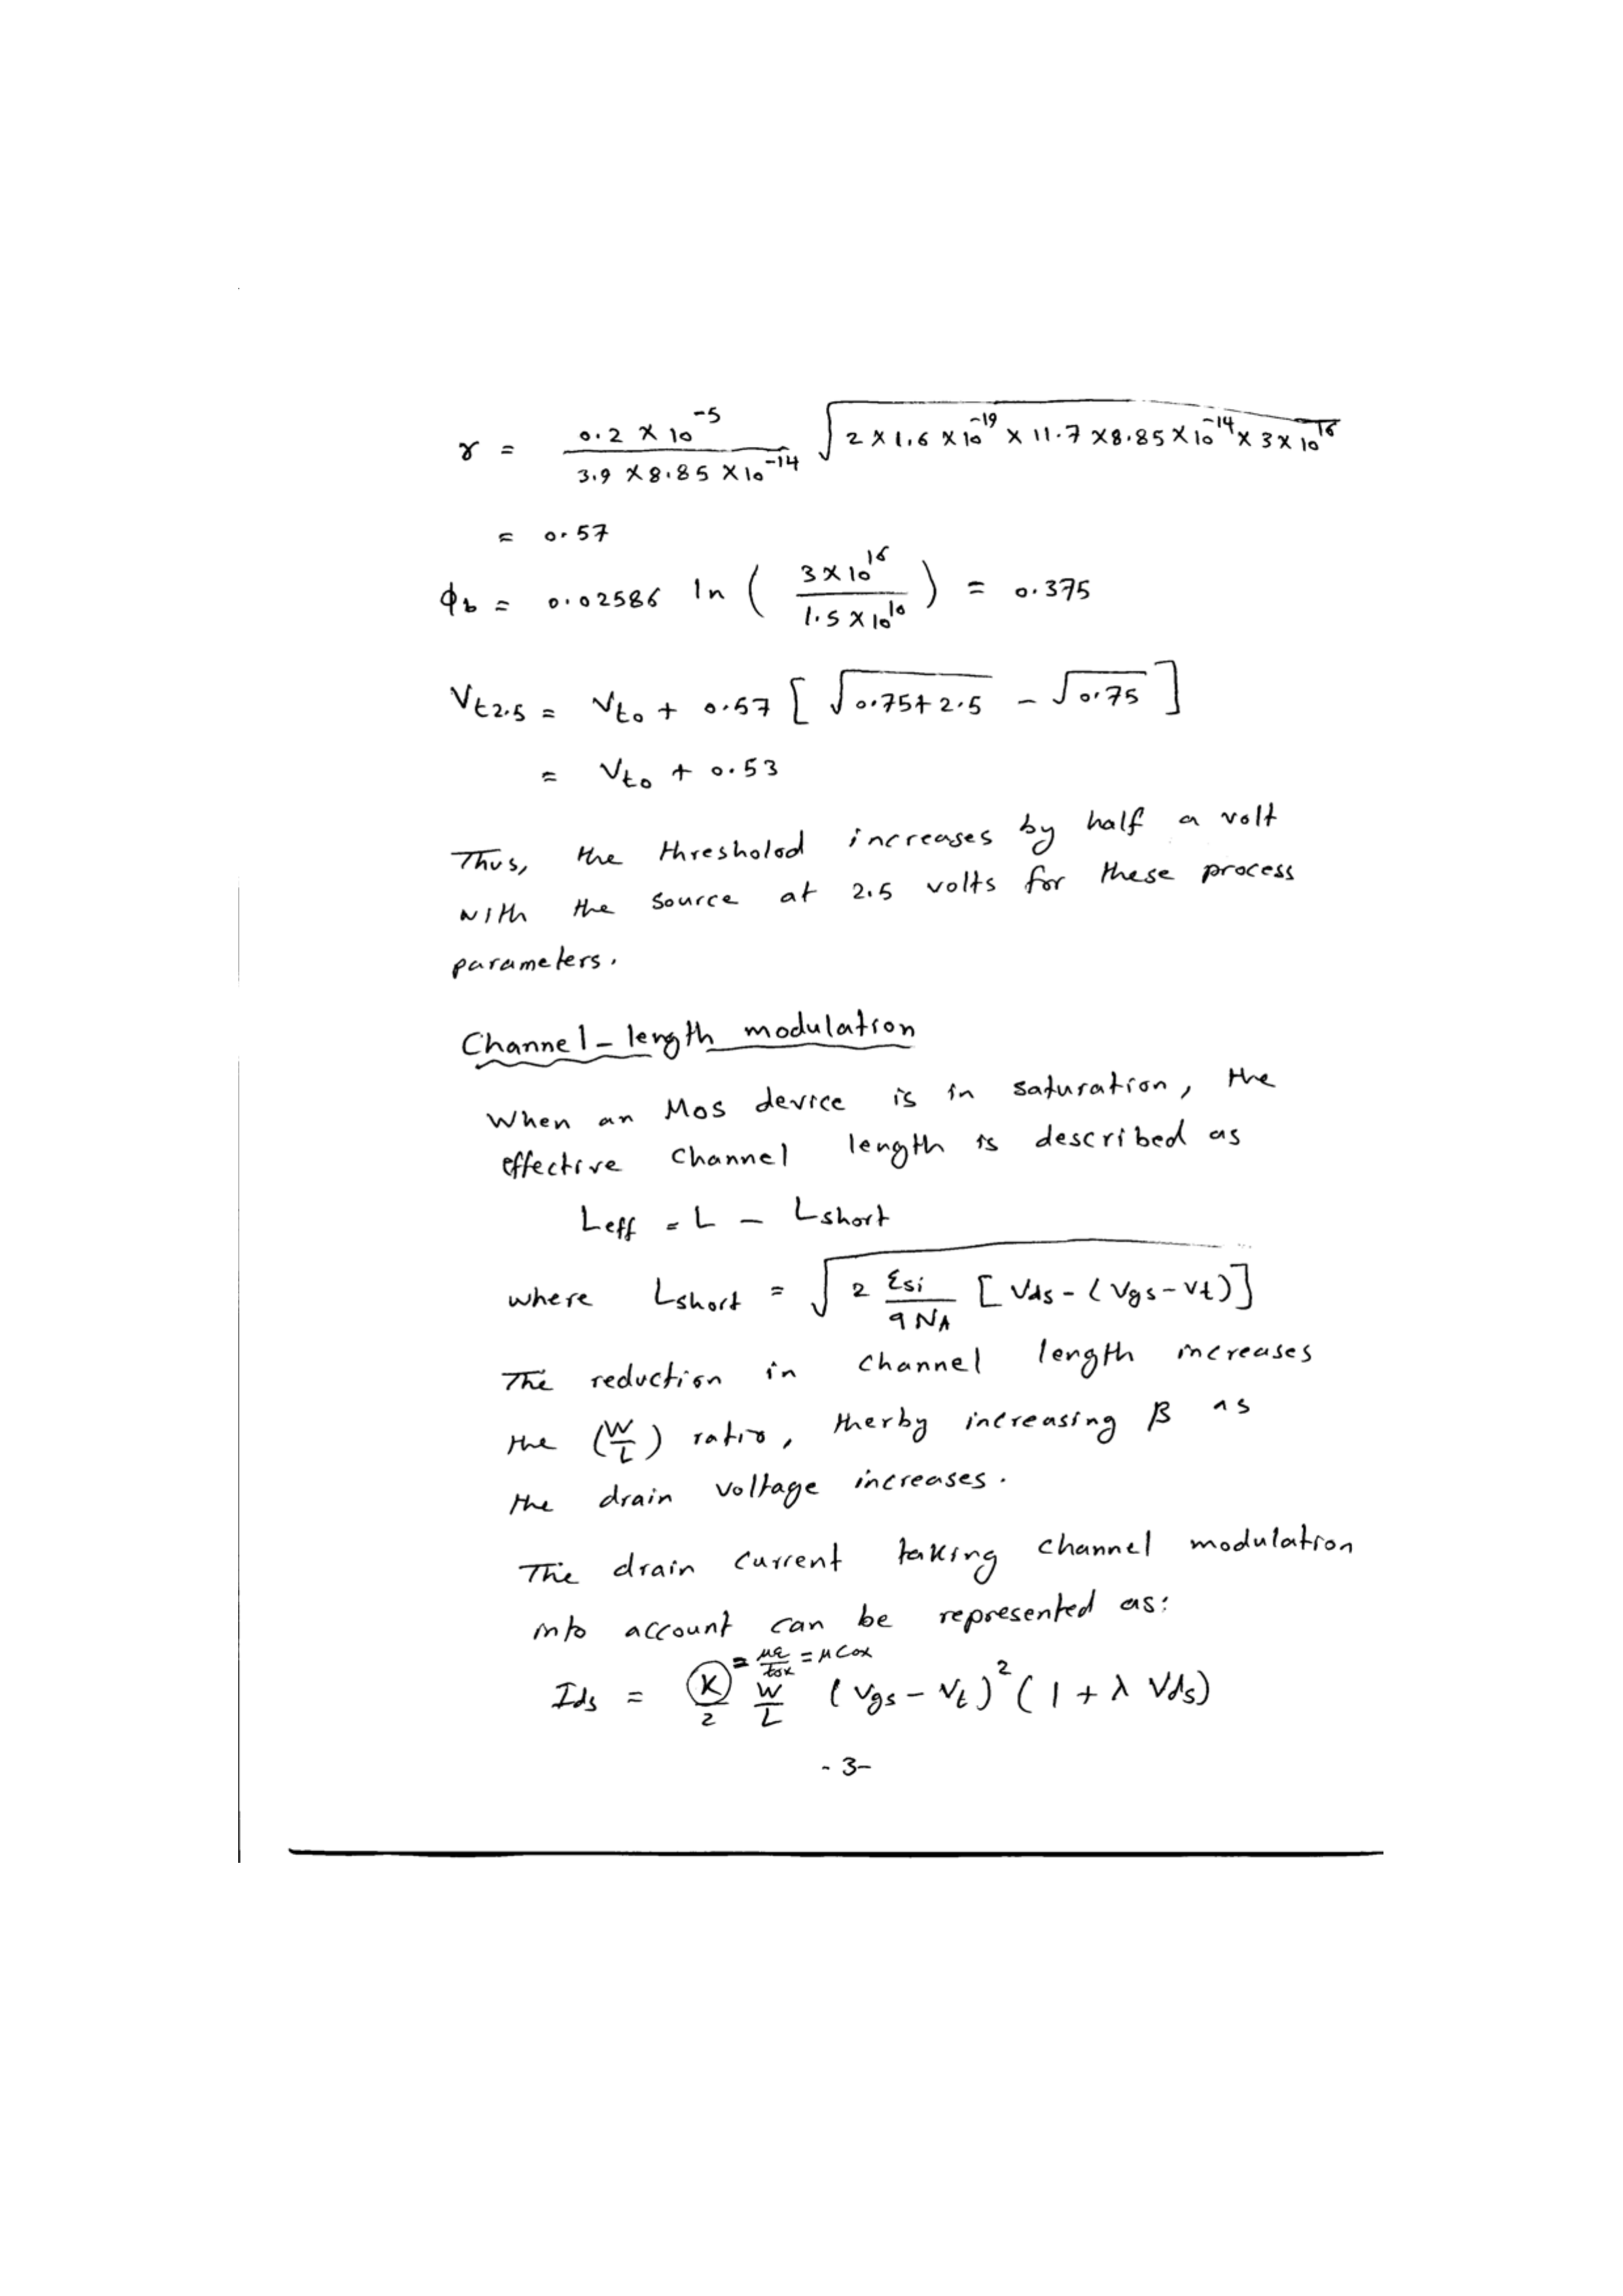 γ = 0.2 × 10^-5 / 3.9 × 8.85 × 10^-14 √(2 × 1.6 × 10^-19 × 11.7 × 8.85 × 10^-14 × 3 × 10^16)
= 0.57
φb = 0.02586 ln ( 3 × 10^16 / 1.5 × 10^10 ) = 0.375
Vt2.5 = Vto + 0.57 [ √(0.75 + 2.5) - √0.75 ]
= Vto + 0.53
Thus, the thresholod increases by half a volt
with the source at 2.5 volts for these process
parameters.
Channel-length modulation
When an MOS device is in saturation, the
effective channel length is described as
Leff = L - Lshort
where Lshort = √(2 εsi / qNA [Vds - (Vgs - Vt)])
The reduction in channel length increases
the (W/L) ratio, therby increasing β as
the drain voltage increases.
The drain current taking channel modulation
into account can be represented as:
= με/tox = μCox
Ids = K/2 W/L (Vgs - Vt)^2 (1 + λ Vds)
- 3 -